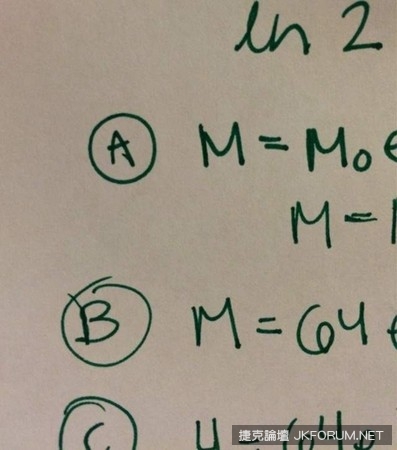 ln 2
Ⓐ M = M₀ e
M =
Ⓑ M = 64 e
Ⓒ
捷克論壇 JKFORUM.NET